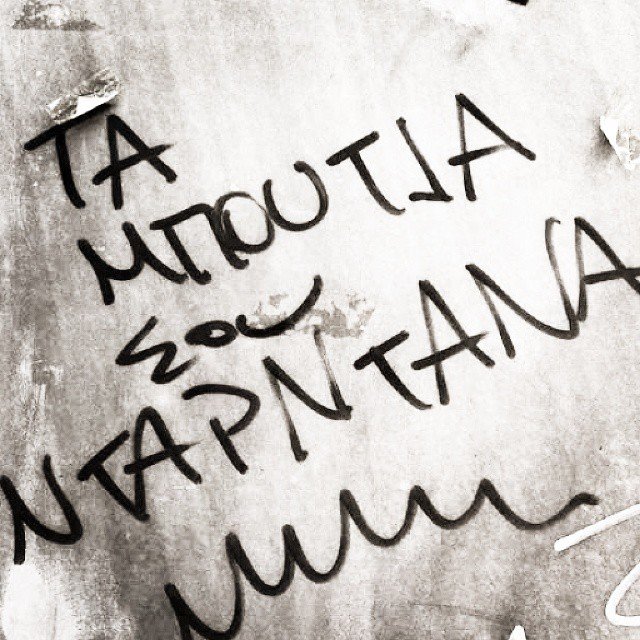 ΤΑ
ΜΠΟΥΤΙΑ
ΣΟΥ
ΝΤΑΡΝΤΑΝΑ